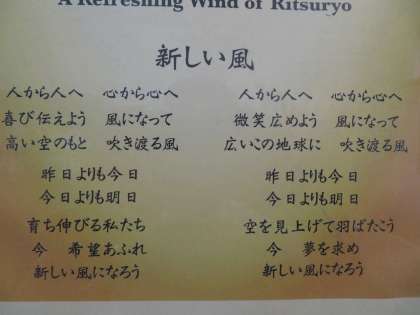 A Refreshing Wind of Ritsuryo
新しい風
人から人へ　心から心へ
喜び伝えよう　風になって
高い空のもと　吹き渡る風
昨日よりも今日
今日よりも明日
育ち伸びる私たち
今　希望あふれ
新しい風になろう
人から人へ　心から心へ
微笑広めよう　風になって
広いこの地球に　吹き渡る風
昨日よりも今日
今日よりも明日
空を見上げて羽ばたこう
今　夢を求め
新しい風になろう